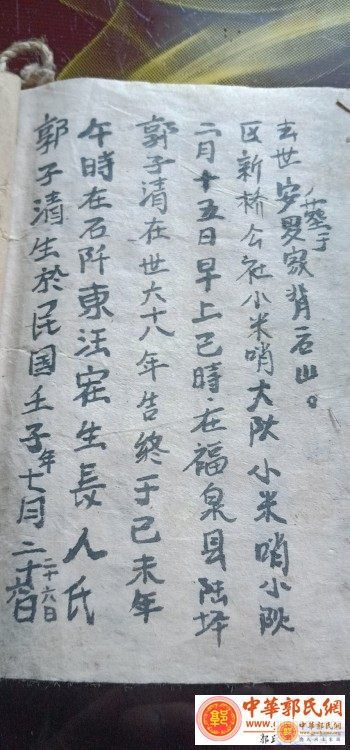 郭子清生於民国壬子年七月二十六日
午時在石阡東汪宅生長人氏
郭子清在世六十八年告終于己未年
二月十五日早上巳時在福泉县陆坪
区新桥公社小米哨大队小米哨小队
去世安葬于罗家背后山。
中華郭氏網